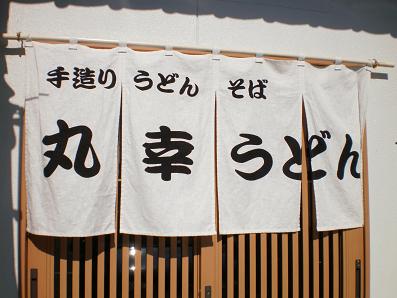 手造り うどん そば
丸幸うどん